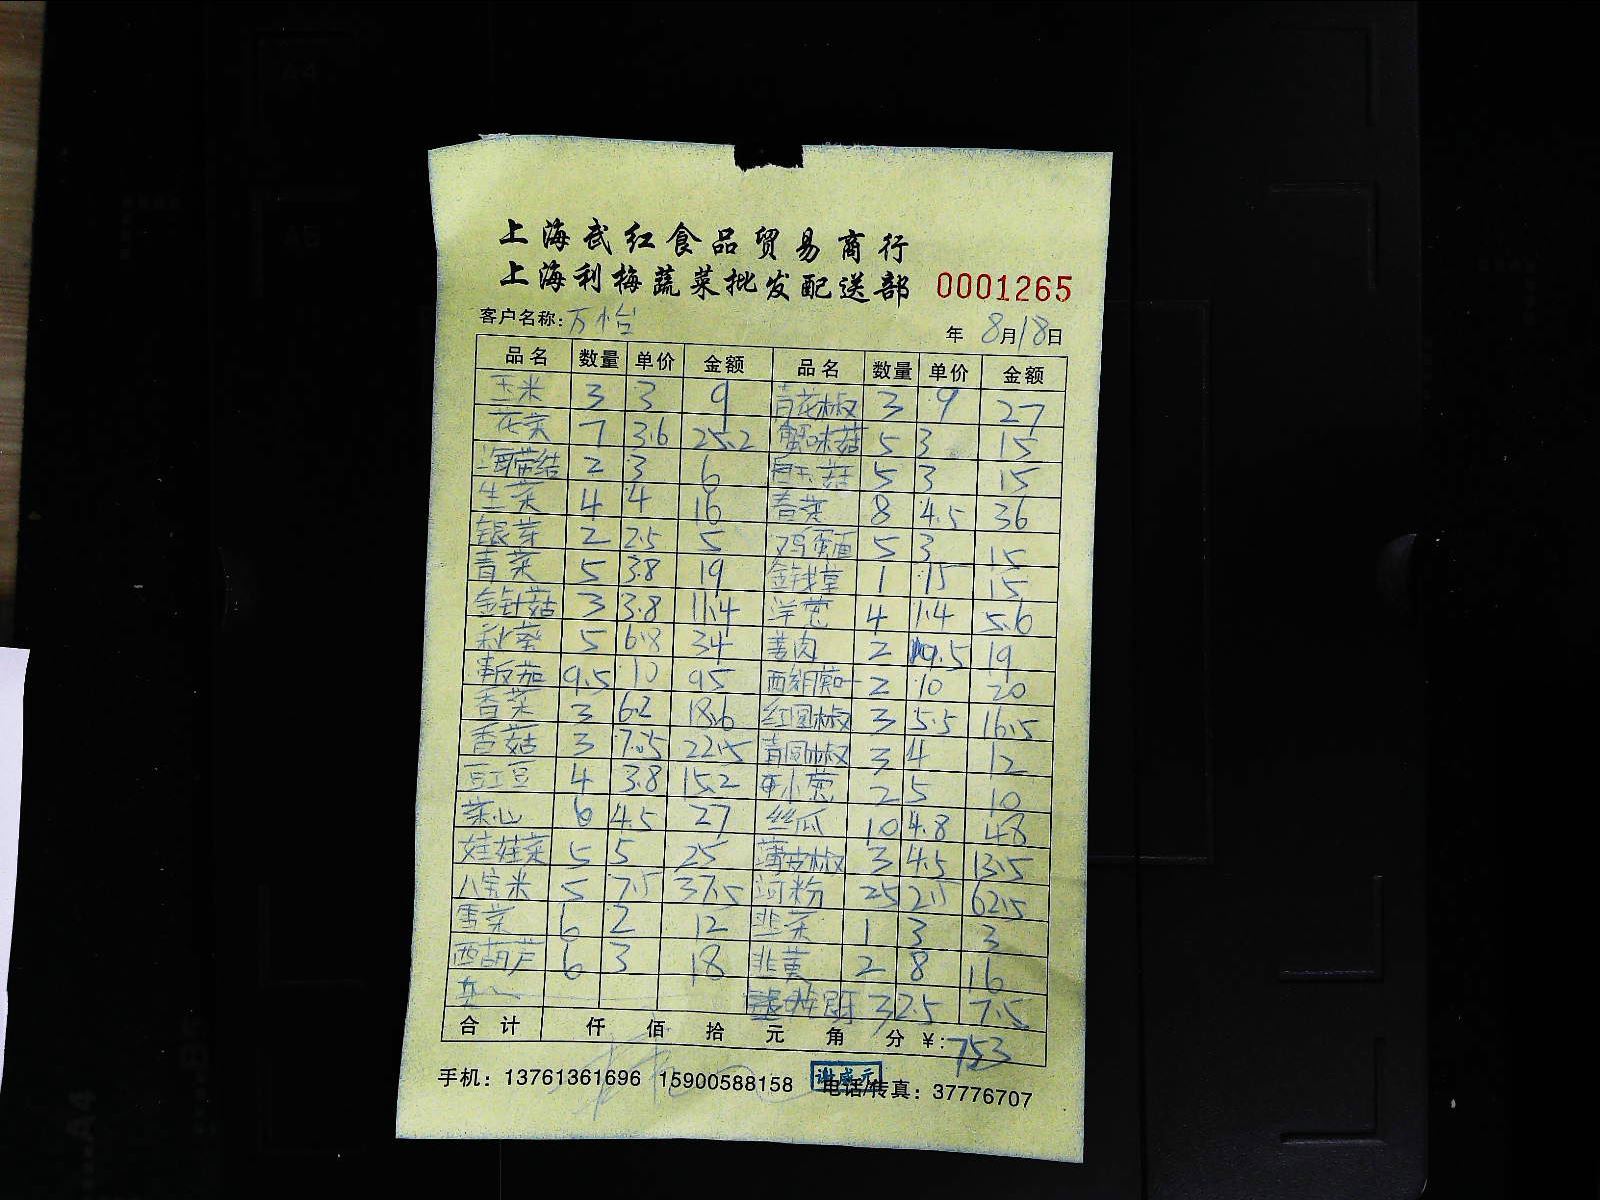 上海武红食品贸易商行
上海利梅蔬菜批发配送部 0001265
客户名称: 万怡 年 8月18日
品名 数量 单价 金额 品名 数量 单价 金额
玉米 3 3 9 青花椒 3 9 27
花菜 7 3.6 25.2 蟹味菇 5 3 15
海带结 2 3 6 白玉菇 5 3 15
生菜 4 4 16 春菜 8 4.5 36
银芽 2 2.5 5 鸡蛋面 5 3 15
青菜 5 3.8 19 金钱草 1 15 15
金针菇 3 3.8 11.4 洋葱 4 1.4 5.6
秋葵 5 6.8 34 姜肉 2 9.5 19
番茄 9.5 10 95 2 10 20
香菜 3 6.2 18.6 红圆椒 3 5.5 16.5
香菇 3 7.5 22.5 青圆椒 3 4 12
豇豆 4 3.8 15.2 小葱 2 5 10
菜心 6 4.5 27 丝瓜 10 4.8 48
娃娃菜 5 5 25 薄皮椒 3 4.5 13.5
八宝米 5 7.5 37.5 河粉 25 2.5 62.5
雪菜 6 2 12 韭菜 1 3 3
西葫芦 6 3 18 韭黄 2 8 16
3 2.5 7.5
合计 仟 佰 拾 元 角 分 ¥: 753
手机: 13761361696 15900588158 电话/传真: 37776707
谢咸元